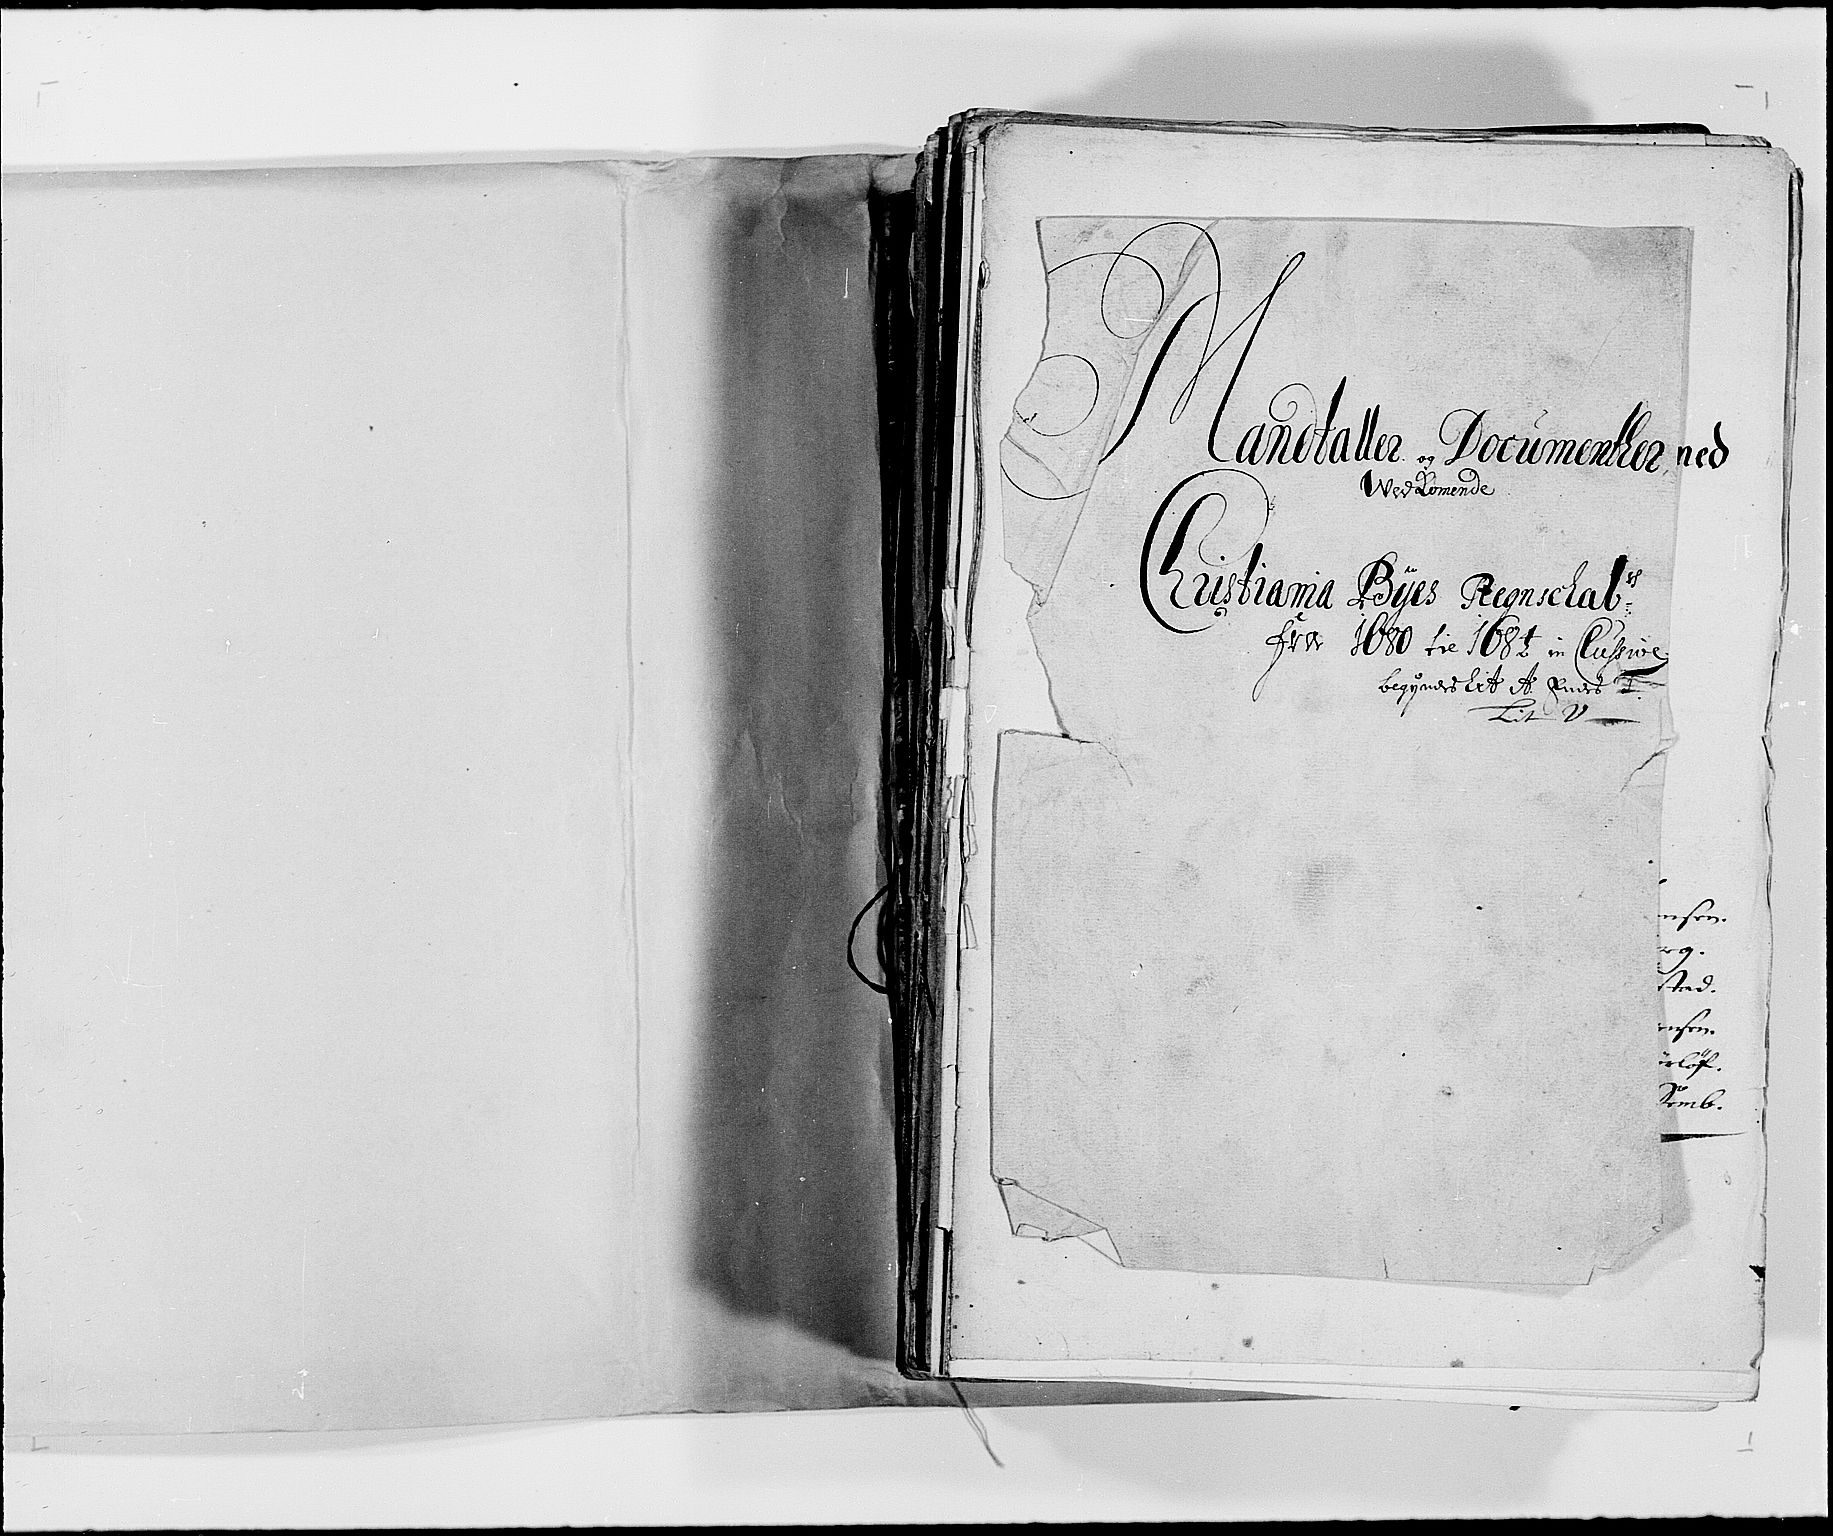 Mandtaller og Documenther ned
Wedkomende
Christiania Byes Regnschab
fra 1680 til 1682 in Clusive
begyndes Lit A Endes
Lit V
nsen.
rg.
sted.
ensen.
Semb.